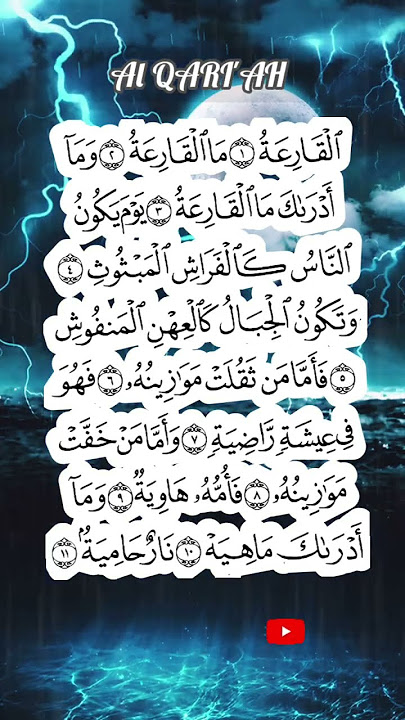 Al QARI'AH
ٱلْقَارِعَةُ ١ مَا ٱلْقَارِعَةُ ٢ وَمَآ
أَدْرَىٰكَ مَا ٱلْقَارِعَةُ ٣ يَوْمَ يَكُونُ
ٱلنَّاسُ كَٱلْفَرَاشِ ٱلْمَبْثُوثِ ٤
وَتَكُونُ ٱلْجِبَالُ كَٱلْعِهْنِ ٱلْمَنفُوشِ
٥ فَأَمَّا مَن ثَقُلَتْ مَوَٰزِينُهُۥ ٦ فَهُوَ
فِى عِيشَةٍ رَّاضِيَةٍ ٧ وَأَمَّا مَنْ خَفَّتْ
مَوَٰزِينُهُۥ ٨ فَأُمُّهُۥ هَاوِيَةٌ ٩ وَمَآ
أَدْرَىٰكَ مَا هِيَهْ ١٠ نَارٌ حَامِيَةٌۢ ١١